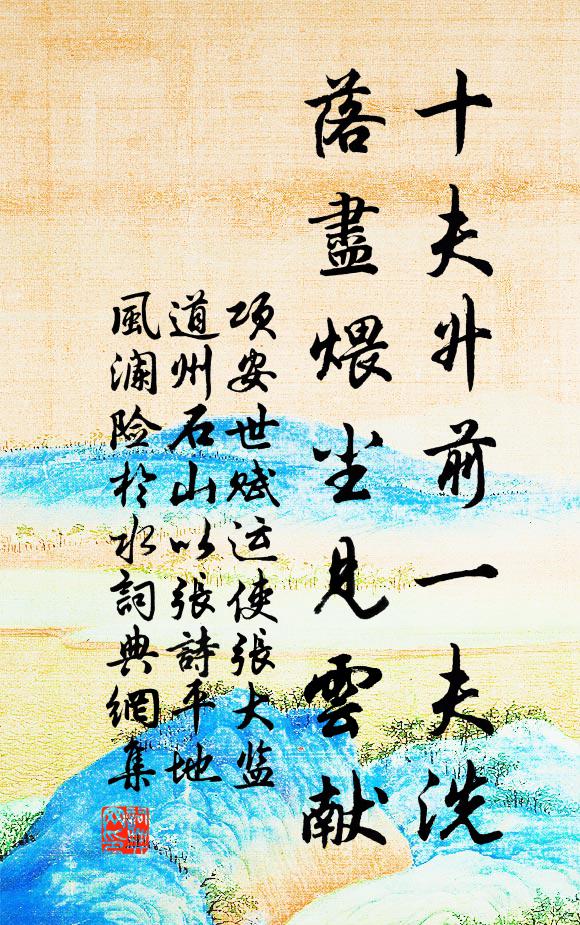 十夫升前一夫洗
落盡煨尘見雲献
项安世赋运使張大监
道州石山以張詩平地
風澜险於水詞典網集